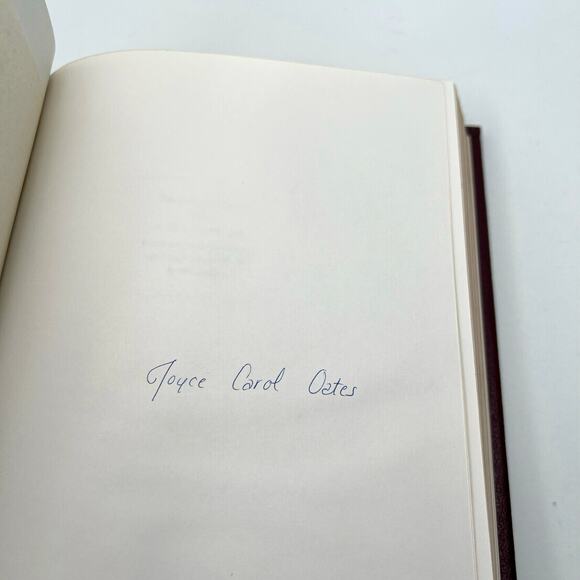 Joyce Carol Oates